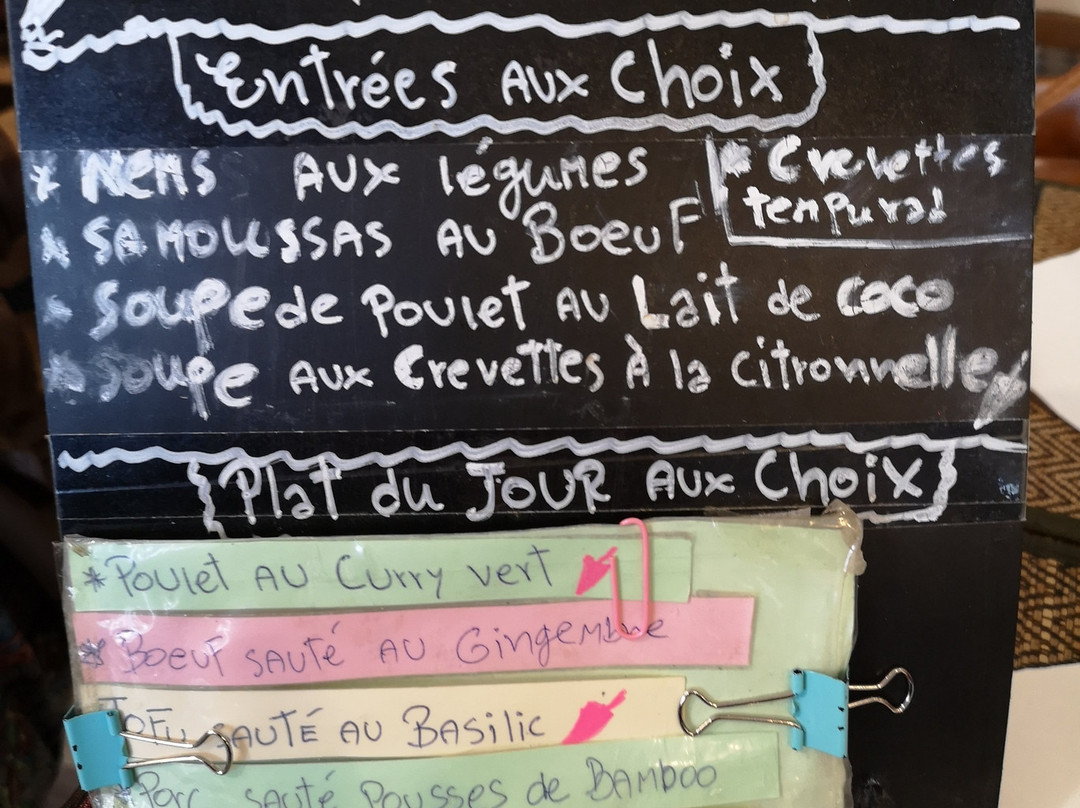 Entrées AUX Choix
* NEMS AUX légumes
* Crevettes
tempura!
* SAMOUSSAS AU BOEUF
* Soupe de Poulet AU Lait de coco
* Soupe AUX Crevettes À la citronnelle
Plat du JOUR AUX Choix
* Poulet AU Curry vert
* Boeuf SAUTÉ AU Gingembre
TOFU SAUTÉ AU BASILIC
* Porc sauté Pousses de BAMBOO